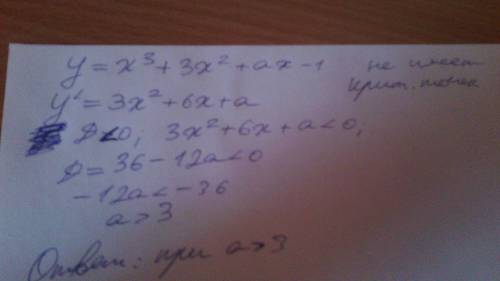 y = x³ + 3x² + ax - 1 не имеет крит. точек
y' = 3x² + 6x + a
D < 0; 3x² + 6x + a < 0;
D = 36 - 12a < 0
-12a < -36
a > 3
Ответ: при a > 3